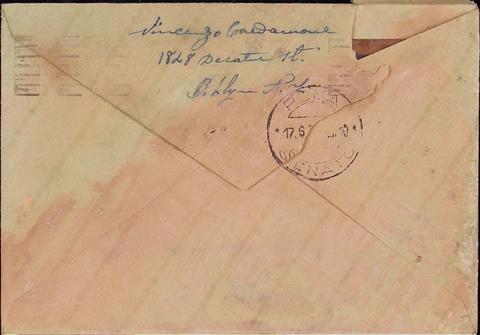 Vincenzo Cardamone
1828 Decatur St.
Bklyn N.Y.
ROMA
* 17.6
SENATO